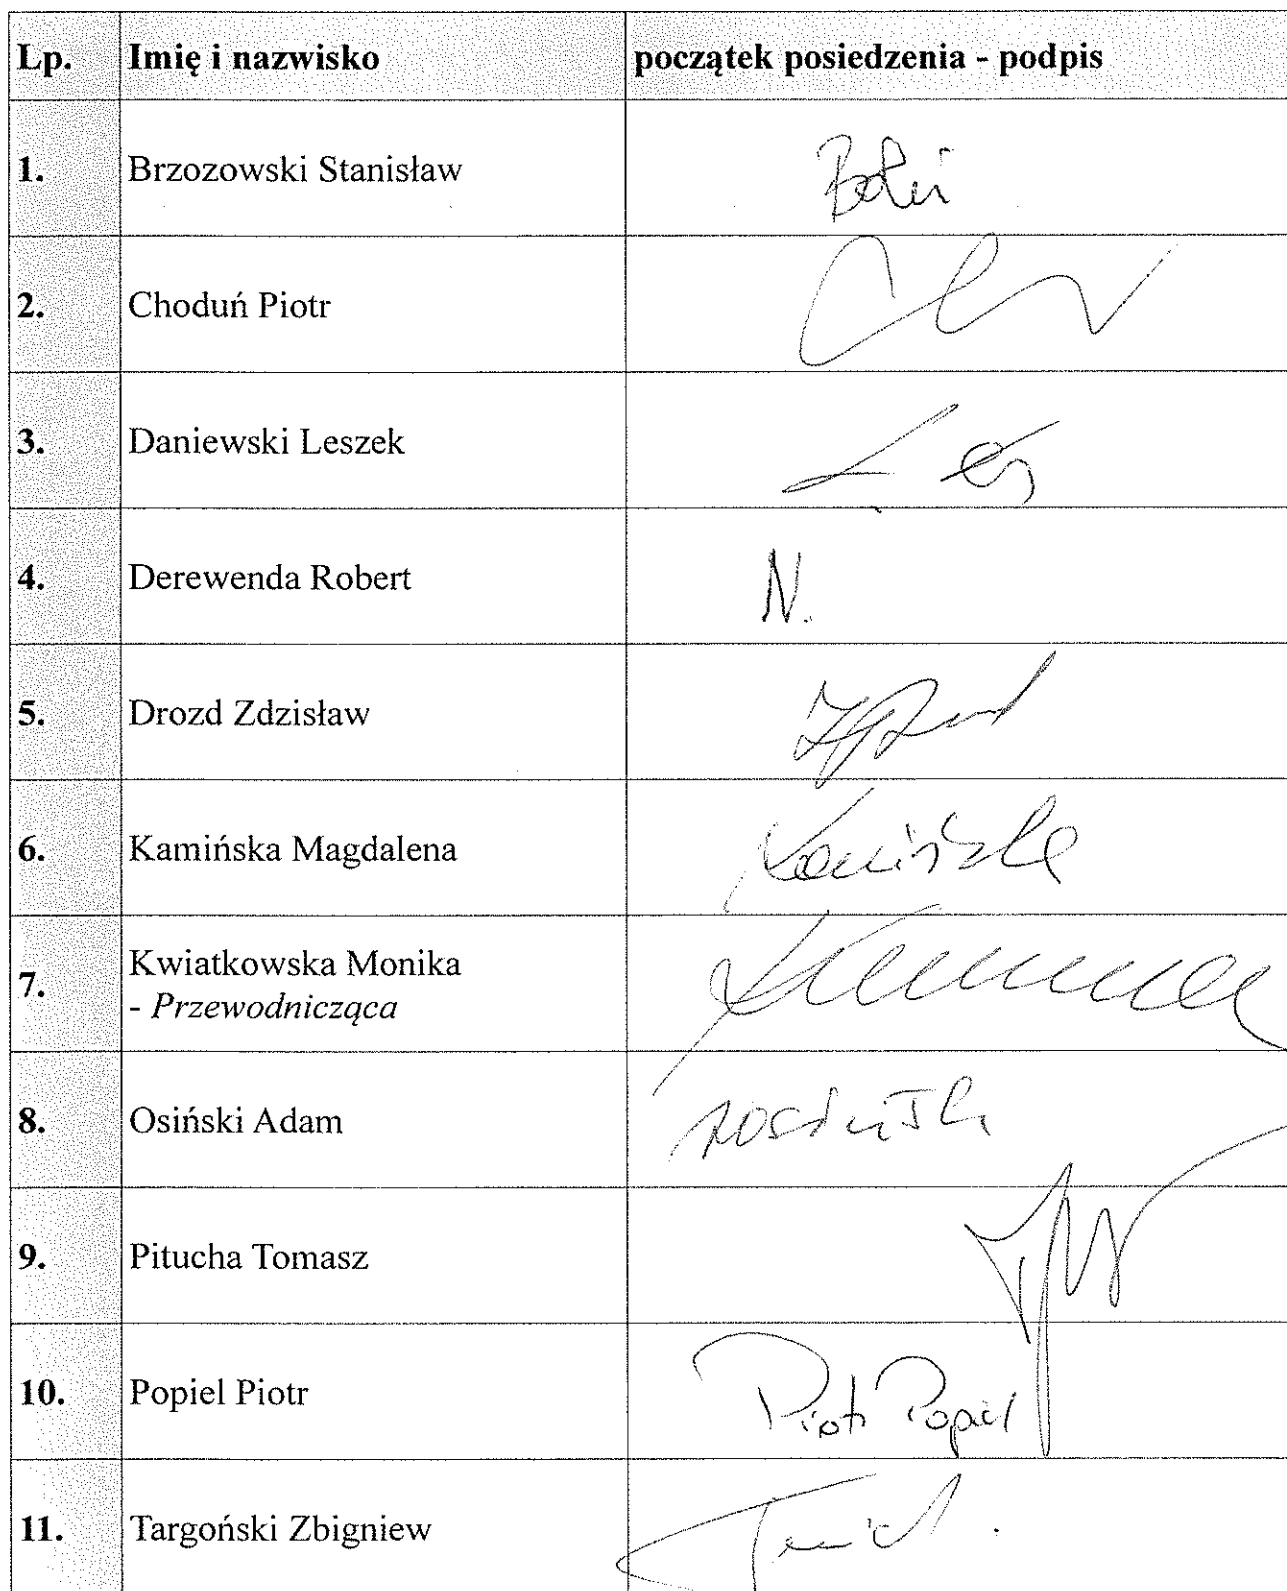 Lp. Imię i nazwisko początek posiedzenia - podpis
1. Brzozowski Stanisław
2. Choduń Piotr
3. Daniewski Leszek
4. Derewenda Robert N.
5. Drozd Zdzisław
6. Kamińska Magdalena Kamińska
7. Kwiatkowska Monika
- Przewodnicząca
8. Osiński Adam
9. Pitucha Tomasz
10. Popiel Piotr Piotr Popiel
11. Targoński Zbigniew